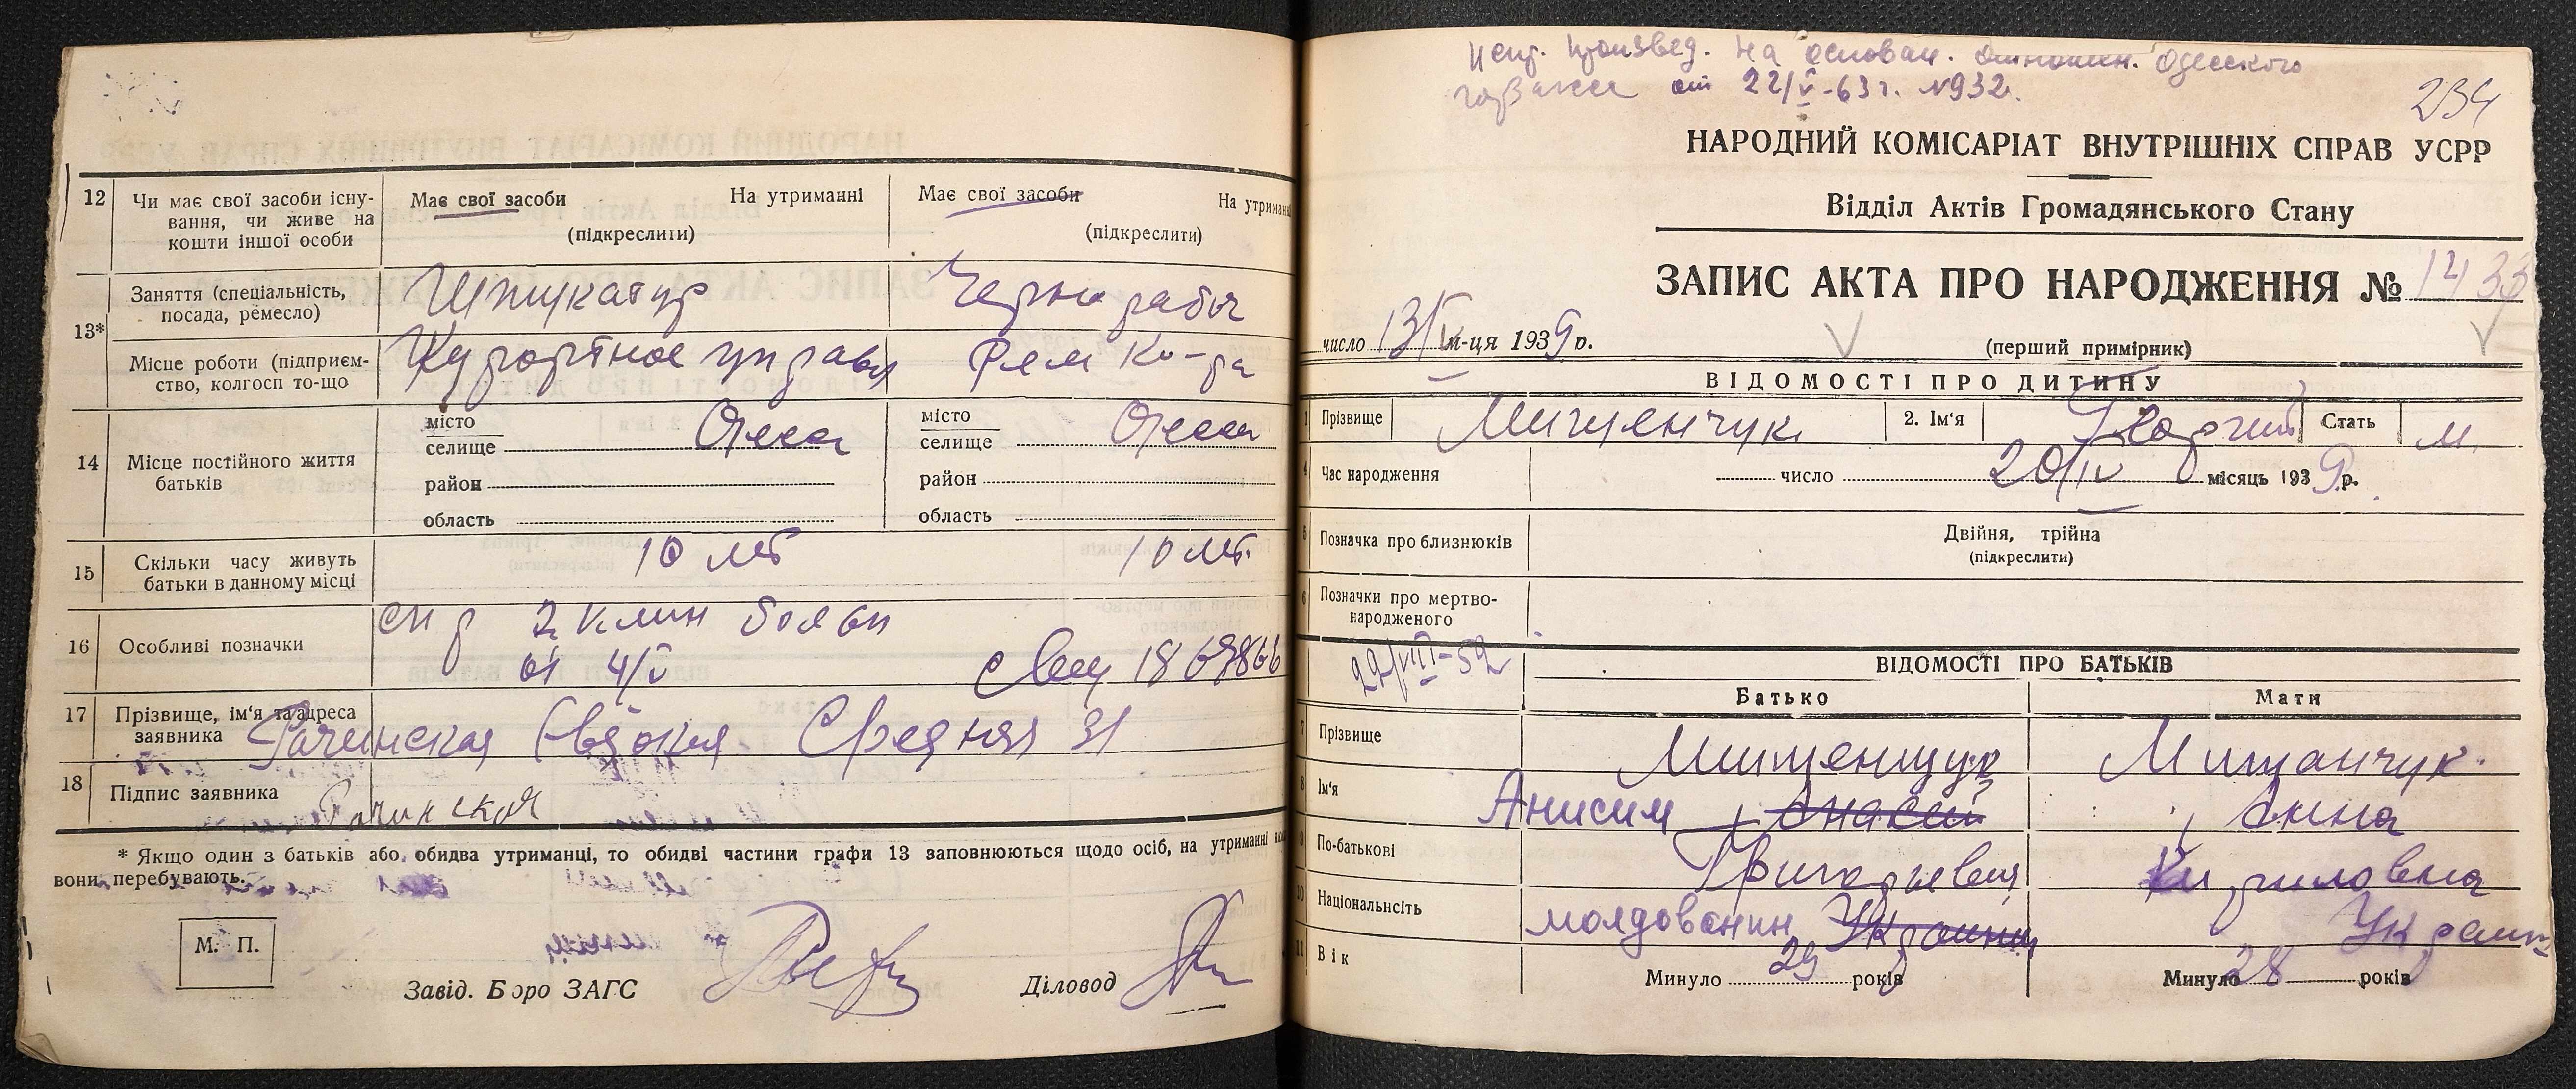 12
Чи має свої засоби існу-
вання, чи живе на
кошти іншої особи
Має свої засоби На утриманні
(підкреслити)
Має свої засоби На утриманні
(підкреслити)
13*
Заняття (спеціальність,
посада, ремесло)
Штукатур
Черно рабоч
Місце роботи (підприєм-
ство, колгосп то-що
Курортное управл
Рем Ко-ра
14
Місце постійного життя
батьків
місто
селище Одесса
район
область
місто
селище Одесса
район
область
15
Скільки часу живуть
батьки в данному місці
10 лет
10 лет.
16
Особливі позначки
спр 2 клин больн
от 4/V
17
Прізвище, ім'я та адреса
заявника
Рачинская Евдокия Средняя 31
18
Підпис заявника
Рачинская
* Якщо один з батьків або обидва утриманці, то обидві частини графи 13 заповнюються щодо осіб, на утриманні
вони перебувають.
М. П.
Завід. Бюро ЗАГС
Діловод
Испр. произвед. На основан. отношен. Одесского
горЗагса от 22/V-63г. №932.
234
НАРОДНИЙ КОМІСАРІАТ ВНУТРІШНІХ СПРАВ УСРР
Відділ Актів Громадянського Стану
ЗАПИС АКТА ПРО НАРОДЖЕННЯ № 1433
число 13/V м-ця 1939 р.
(перший примірник)
ВІДОМОСТІ ПРО ДИТИНУ
1 Прізвище Мищенчук 2. Ім'я Георгий Стать М.
4 Час народження число 20/IV місяць 1939 р.
5 Позначка про близнюків
Двійня, трійна
(підкреслити)
6 Позначки про мертво-
народженого
22/VIII-52
ВІДОМОСТІ ПРО БАТЬКІВ
Батько Мати
7 Прізвище Мищенчук Мищанчук
8 Ім'я Анисим Анна
9 По-батькові Григорьевич Кириловна
10 Національнсіть молдованин Украин Украин
11 Вік
Минуло 29 років
Минуло 28 років